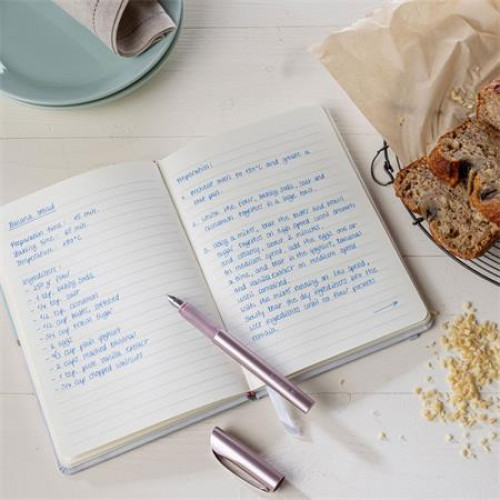 Banana bread
Preparation time: 15 min.
Baking time: 65 min.
Temperature: 177°C
Ingredients:
- 250gr flour
- 1 tsp. baking soda
- 1/4 tsp. salt
- 1/2 tsp. cinnamon
- 1/2 cup butter, softened
- 3/4 cup brown sugar
- 2 eggs
- 1/3 cup plain yoghurt
- 2 cups mashed bananas
- 1 tsp. pure vanilla extract
- 3/4 cup chopped walnuts
Preparation:
1. Preheat oven to 177°C and grease a
loaf pan.
2. Whisk the flour, baking soda, salt and
cinnamon together in a large bowl.
3. Using a mixer, beat the butter and brown
sugar together on high speed until smooth
and creamy, about 2 minutes.
On medium speed, add the eggs one at
a time, and beat in the yoghurt, bananas
and vanilla extract on medium speed
until combined.
With the mixer running on low speed,
slowly beat the dry ingredients into the
wet ingredients until no flour pockets
remain.